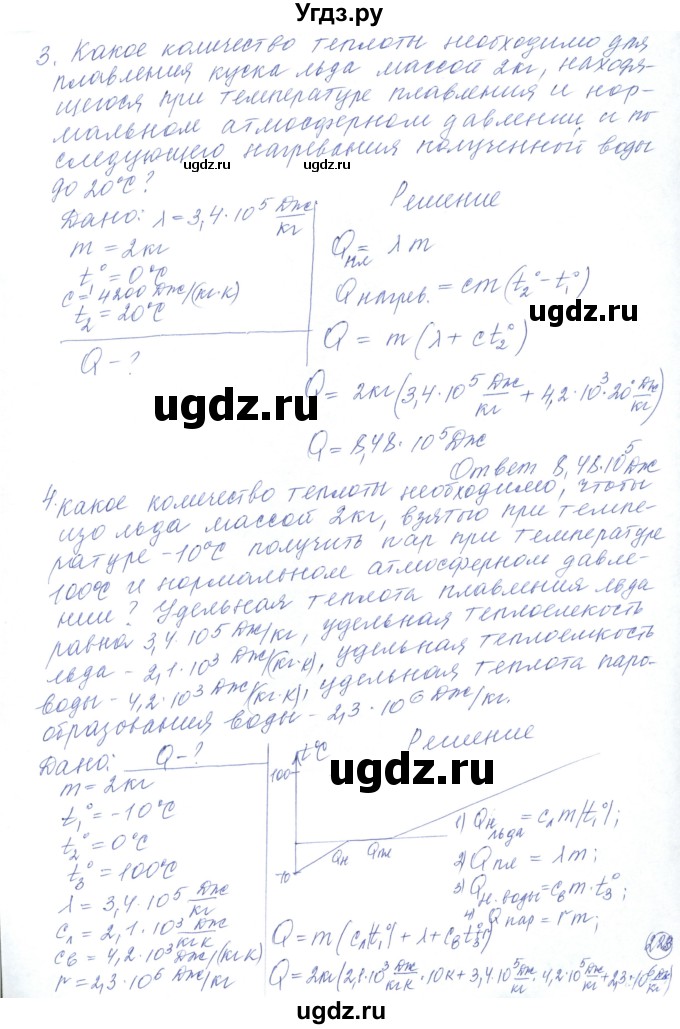 Угдз.ру
3. Какое количество теплоты необходимо для
плавления куска льда массой 2кг, находя-
щегося при температуре плавления и нор-
мальном атмосферном давлении и по
следующего нагревания полученной воды
до 20°С?
Дано: λ = 3,4·10⁵ Дж/кг
m = 2кг
t₁° = 0°С
c = 4200 Дж/(кг·к)
t₂° = 20°С
Q - ?
Решение
Qпл = λm
Qнагрев. = cm(t₂° - t₁°)
Q = m(λ + ct₂°)
Q = 2кг(3,4·10⁵ Дж/кг + 4,2·10³·20 Дж/кг)
Q = 8,48·10⁵ Дж
Ответ 8,48·10⁵ Дж
4. Какое количество теплоты необходимо, чтобы
изо льда массой 2кг, взятого при темпе-
ратуре -10°С получить пар при температуре
100°С и нормальном атмосферном давле-
нии? Удельная теплота плавления льда
равна 3,4·10⁵ Дж/кг, удельная теплоемкость
льда - 2,1·10³ Дж/(кг·к), удельная теплоемкость
воды - 4,2·10³ Дж/(кг·к), удельная теплота паро-
образования воды - 2,3·10⁶ Дж/кг.
Дано: Q - ?
m = 2кг
t₁° = -10°С
t₂° = 0°С
t₃° = 100°С
λ = 3,4·10⁵ Дж/кг
cл = 2,1·10³ Дж/кг к
cв = 4,2·10³ Дж/(кг·к)
r = 2,3·10⁶ Дж/кг
Решение
t°С
100
-10
Qн
Qпл
1) Qн льда = cлm|t₁°|;
2) Qпл = λm;
3) Qн. воды = cвm·t₃°;
4) Qпар = rm;
Q = m(cл|t₁°| + λ + cвt₃°
Q = 2кг(2,1·10³ Дж/кгк · 10к + 3,4·10⁵ Дж/кг · 4,2·10⁵ Дж/кг + 2,3·10⁶ Дж/кг)
223
угдз.ru
угдз.ru
угдз.ru
угдз.ru
угдз.ru
угдз.ru
угдз.ru
угдз.ru